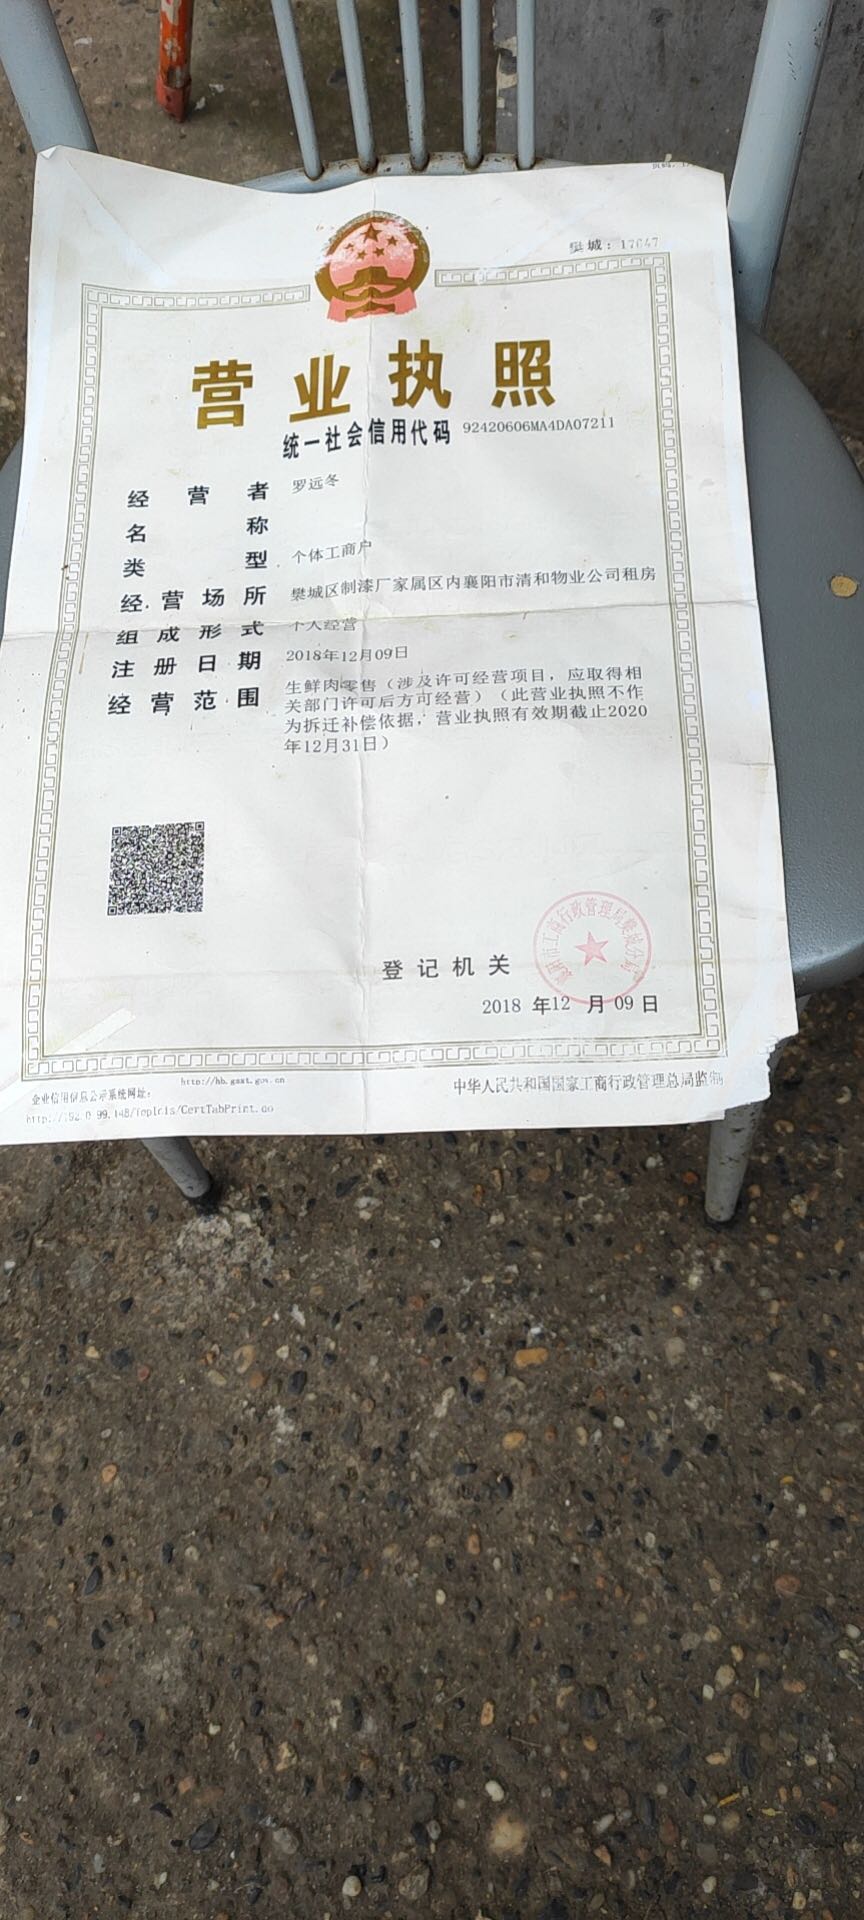 樊城：17647
营业执照
统一社会信用代码 92420606MA4DA07211
经营者 罗远冬
名称
类型 个体工商户
经营场所 樊城区制漆厂家属区内襄阳市清和物业公司租房
组成形式 个人经营
注册日期 2018年12月09日
经营范围 生鲜肉零售（涉及许可经营项目，应取得相
关部门许可后方可经营）（此营业执照不作
为拆迁补偿依据，营业执照有效期截止2020
年12月31日）
市工商行政管理局樊城分局
登记机关
2018 年12 月 09 日
http://hb.gsxt.gov.cn
企业信用信息公示系统网址：
中华人民共和国国家工商行政管理总局监制
CertTabPrint.do